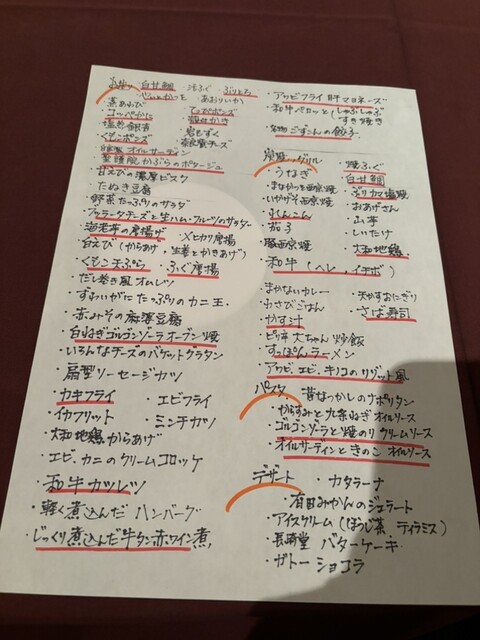 ・白甘鯛
・焼ふぐ
・ぶりとろ
・あおりいか
・煮あわび
・香箱がに
・岩もずく
・塩煎り銀杏
・奈良漬チーズ
・自家製 オイルサーデン
・聖護院かぶらのポタージュ
・甘えびの濃厚ビスク
・たぬき豆腐
・野菜たっぷりのサラダ
・ブッラータチーズと生ハム・フルーツのサラダ
・海老芋の唐揚げ
・メヒカリ唐揚
・白えび（からあげ、生姜とかきあげ）
・くもこ天ぷら
・ふぐ唐揚
・だし巻き風オムレツ
・ずわいがにたっぷりのカニ玉
・赤みその麻婆豆腐
・白ねぎゴルゴンゾーラオーブン焼
・いろんなチーズのバゲットグラタン
・扁型ソーセージカツ
・カキフライ
・エビフライ
・イカフリット
・ミンチカツ
・大和地鶏からあげ
・エビ、カニのクリームコロッケ
・和牛カツレツ
・軽く煮込んだ ハンバーグ
・じっくり煮込んだ牛タン赤ワイン煮
・アワビフライ 肝マヨネーズ
・和牛ペロッとしゃぶしゃぶ
すき焼き
の餃子
炭焼・グリル
・うなぎ
・焼ふぐ
・まながつお西京焼
・白甘鯛
・いやげそ西京焼
・ぶりカマ塩焼
・れんこん
・おあげさん
・茄子
・山芋
・しいたけ
・豚西京焼
・大和地鶏
・和牛（ヘレ、イチボ）
・まかないカレー
・わさびごはん
・天かすおにぎり
・かす汁
・さば寿司
・ピリ辛 大ちゃん 炒飯
・すっぽんラーメン
・アワビ、エビ、キノコのリゾット風
パスタ
・昔なつかしのナポリタン
・からすみと九条ねぎオイルソース
・ゴルゴンゾーラと焼のりクリームソース
・オイルサーディンときのこ オイルソース
デザート
・カタラーナ
・有田みかんのジェラート
・アイスクリーム（ほうじ茶、ティラミス）
・長崎堂 バターケーキ
・ガトーショコラ